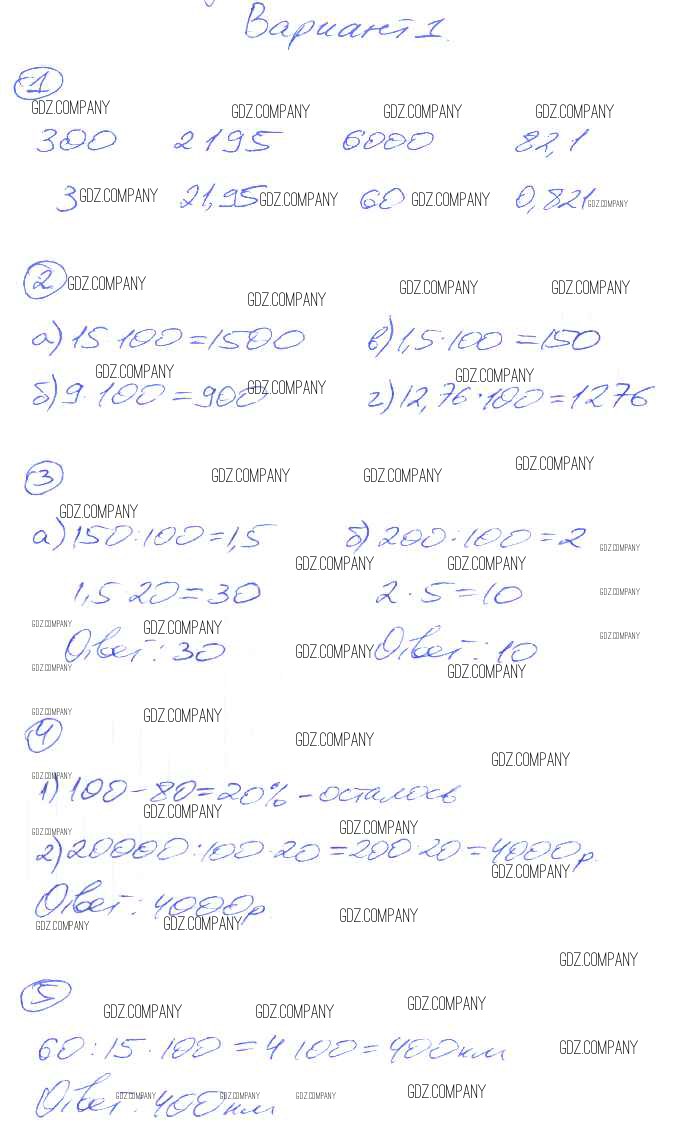 Вариант 1.
1
GDZ.COMPANY GDZ.COMPANY GDZ.COMPANY GDZ.COMPANY
300 2195 6000 82,1
3 GDZ.COMPANY 21,95 GDZ.COMPANY 60 GDZ.COMPANY 0,821 GDZ.COMPANY
2 GDZ.COMPANY GDZ.COMPANY GDZ.COMPANY GDZ.COMPANY
а) 15 100 = 1500 в) 1,5 · 100 = 150
GDZ.COMPANY GDZ.COMPANY
б) 9 · 100 = 900 GDZ.COMPANY г) 12,76 · 100 = 1276
3 GDZ.COMPANY GDZ.COMPANY GDZ.COMPANY
GDZ.COMPANY
а) 150 : 100 = 1,5 б) 200 : 100 = 2 GDZ.COMPANY
GDZ.COMPANY GDZ.COMPANY
1,5 20 = 30 2 · 5 = 10 GDZ.COMPANY
GDZ.COMPANY GDZ.COMPANY GDZ.COMPANY
Ответ: 30 GDZ.COMPANY Ответ: 10
GDZ.COMPANY GDZ.COMPANY
GDZ.COMPANY GDZ.COMPANY
4 GDZ.COMPANY GDZ.COMPANY
GDZ.COMPANY
1) 100 - 80 = 20% - осталось
GDZ.COMPANY GDZ.COMPANY GDZ.COMPANY
2) 20000 : 100 · 20 = 200 · 20 = 4000 р.
GDZ.COMPANY
Ответ: 4000 р.
GDZ.COMPANY GDZ.COMPANY GDZ.COMPANY
GDZ.COMPANY
5
GDZ.COMPANY GDZ.COMPANY GDZ.COMPANY
60 : 15 · 100 = 4 100 = 400 км GDZ.COMPANY
Ответ: 400 км
GDZ.COMPANY GDZ.COMPANY GDZ.COMPANY GDZ.COMPANY